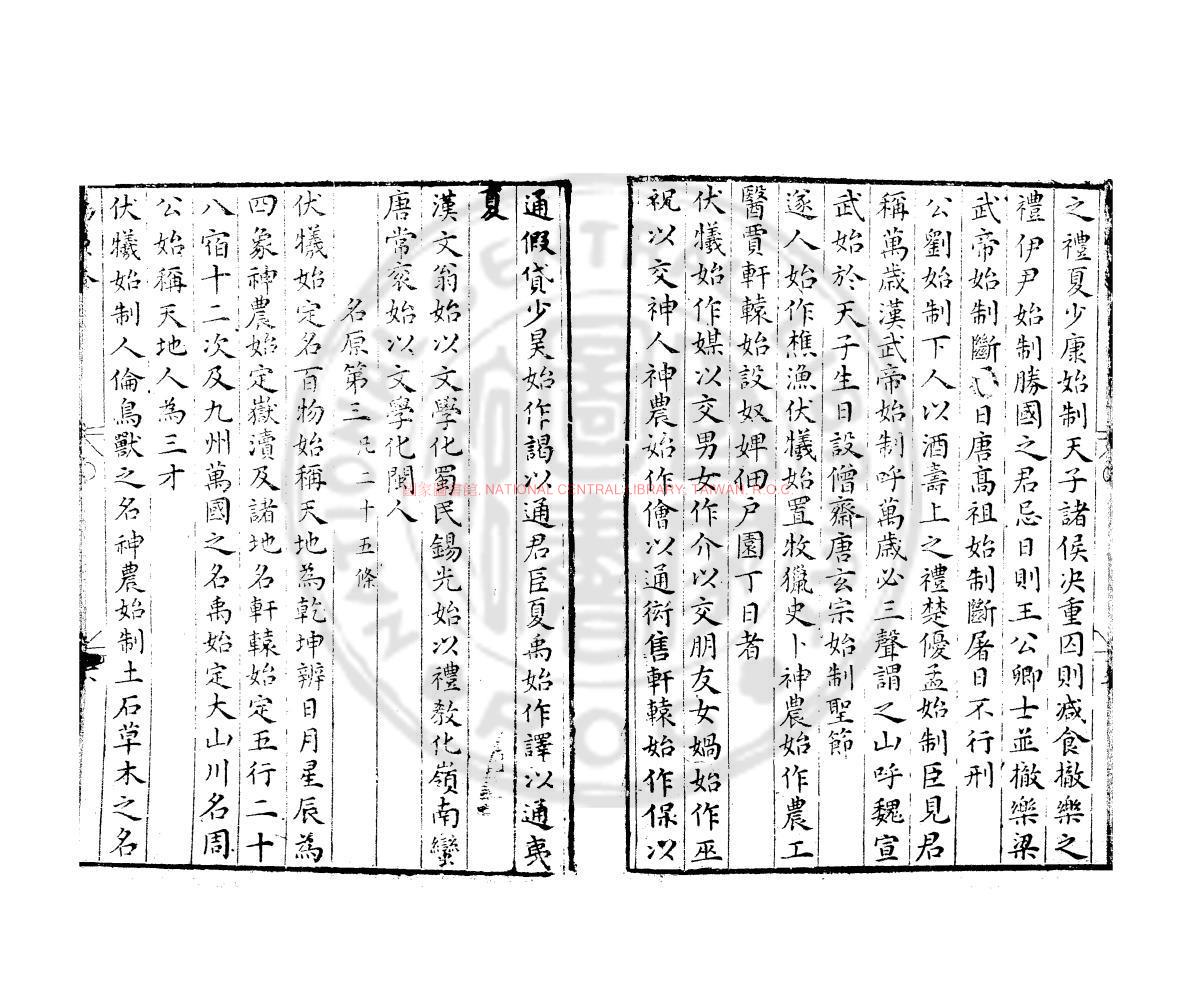 之禮夏少康始制天子諸侯决重囚則减食撤樂之
禮伊尹始制勝國之君忌日則王公卿士並撤樂梁
武帝始制斷日唐髙祖始制斷屠日不行刑
公劉始制下人以酒壽上之禮楚優孟始制臣見君
稱萬歳漢武帝始制呼萬歳必三聲謂之山呼魏宣
武始於天子生日設僧齋唐玄宗始制聖節
遂人始作樵漁伏犧始置牧獵史卜神農始作農工
醫賈軒轅始設奴婢佃户園丁日者
伏犧始作媒以交男女作介以交朋友女媧始作巫
祝以交神人神農始作儈以通衒售軒轅始作保以
通假貸少昊始作謁以通君臣夏禹始作譯以通夷
夏
漢文翁始以文學化蜀民錫光始以禮敎化嶺南蠻
唐常衮始以文學化閩人
名原第三 凡二十五條
伏犧始定名百物始稱天地為乾坤辨日月星辰為
四象神農始定嶽瀆及諸地名軒轅始定五行二十
八宿十二次及九州萬國之名禹始定大山川名周
公始稱天地人為三才
伏犧始制人倫鳥獸之名神農始制土石草木之名
國家圖書館, NATIONAL CENTRAL LIBRARY, TAIWAN, R.O.C.